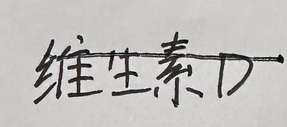 维生素D